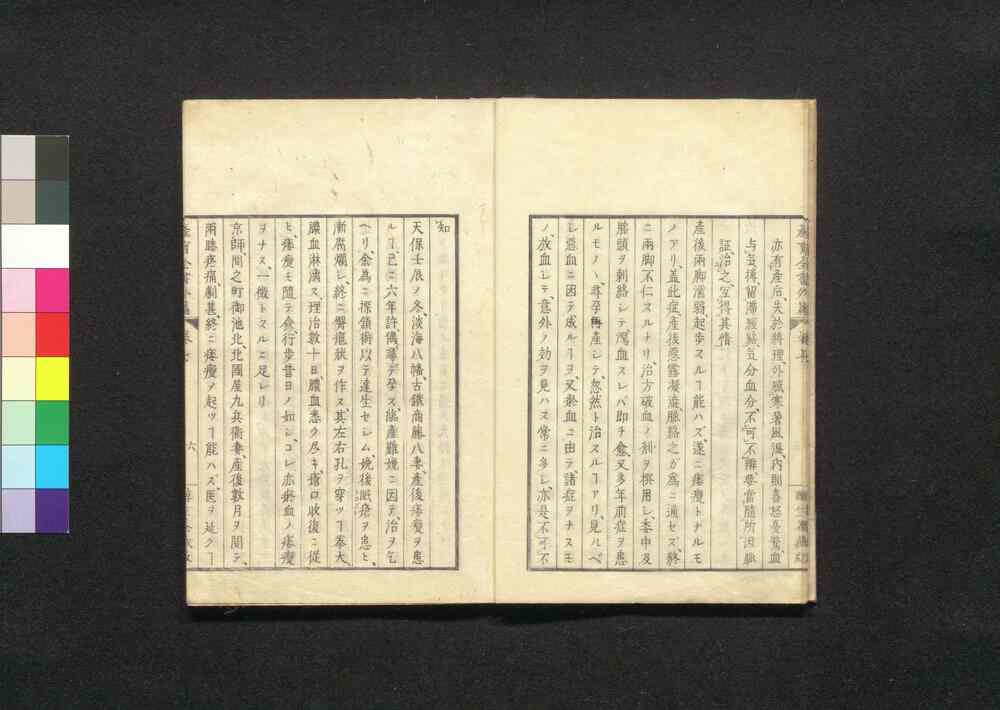 亦有産后、失於將理、外感寒暑風湿、内則喜怒憂驚、血
与気搏、留滞経絡、気分血分、不可不辨、要當隨所因、脈
証治之、宜得其情
産後両脚濡弱、起歩スルヿ能ハズ、遂ニ痿躄トナルモ
ノアリ、蓋此症産後悪露凝滞、脈路之ガ為ニ通セズ、終
ニ両脚不仁スルナリ、治方破血ノ剤ヲ撰用シ、委中及
膝頭ヲ刺絡シテ瀉血スレバ即チ愈、又多年前症ヲ患
ルモノヽ、尋孕再産シテ、忽然ト治スルヿアリ、見ルベ
シ悪血ニ因テ成ルヿヲ、又瘀血ニ由テ諸症ヲナスモ
ノ、放血シテ、意外ノ効ヲ見ハス常ニ多シ、亦是不可不
知
天保壬辰ノ冬、淡海八幡、古鐵商藤八妻、産後痿躄ヲ患
ルヿ、已ニ六年許、偶尋デ孕ス、臨産難娩ニ因テ治ヲ乞
ヘリ、余為ニ探頷術以テ達生セシム、娩後眂瘡ヲ患ヒ、
漸腐爛シ終ニ臀疽状ヲ作ス、其左右孔ヲ穿ツヿ拳大、
膿血淋漓ス、理治数十日、膿血悉ク尽キ、瘡口收後ニ従
ヒ、痿躄モ隨テ愈、行歩昔日ノ如シ、コレ亦瘀血ノ痿躄
ヲナス、一徴トスルニ足レリ
京師、間之町御池北、北國屋九兵衛妻、産後数月ヲ間テ、
両膝疼痛、劇甚終ニ痿躄ヲ起ツヿ能ハズ、医ヲ延クヿ
六